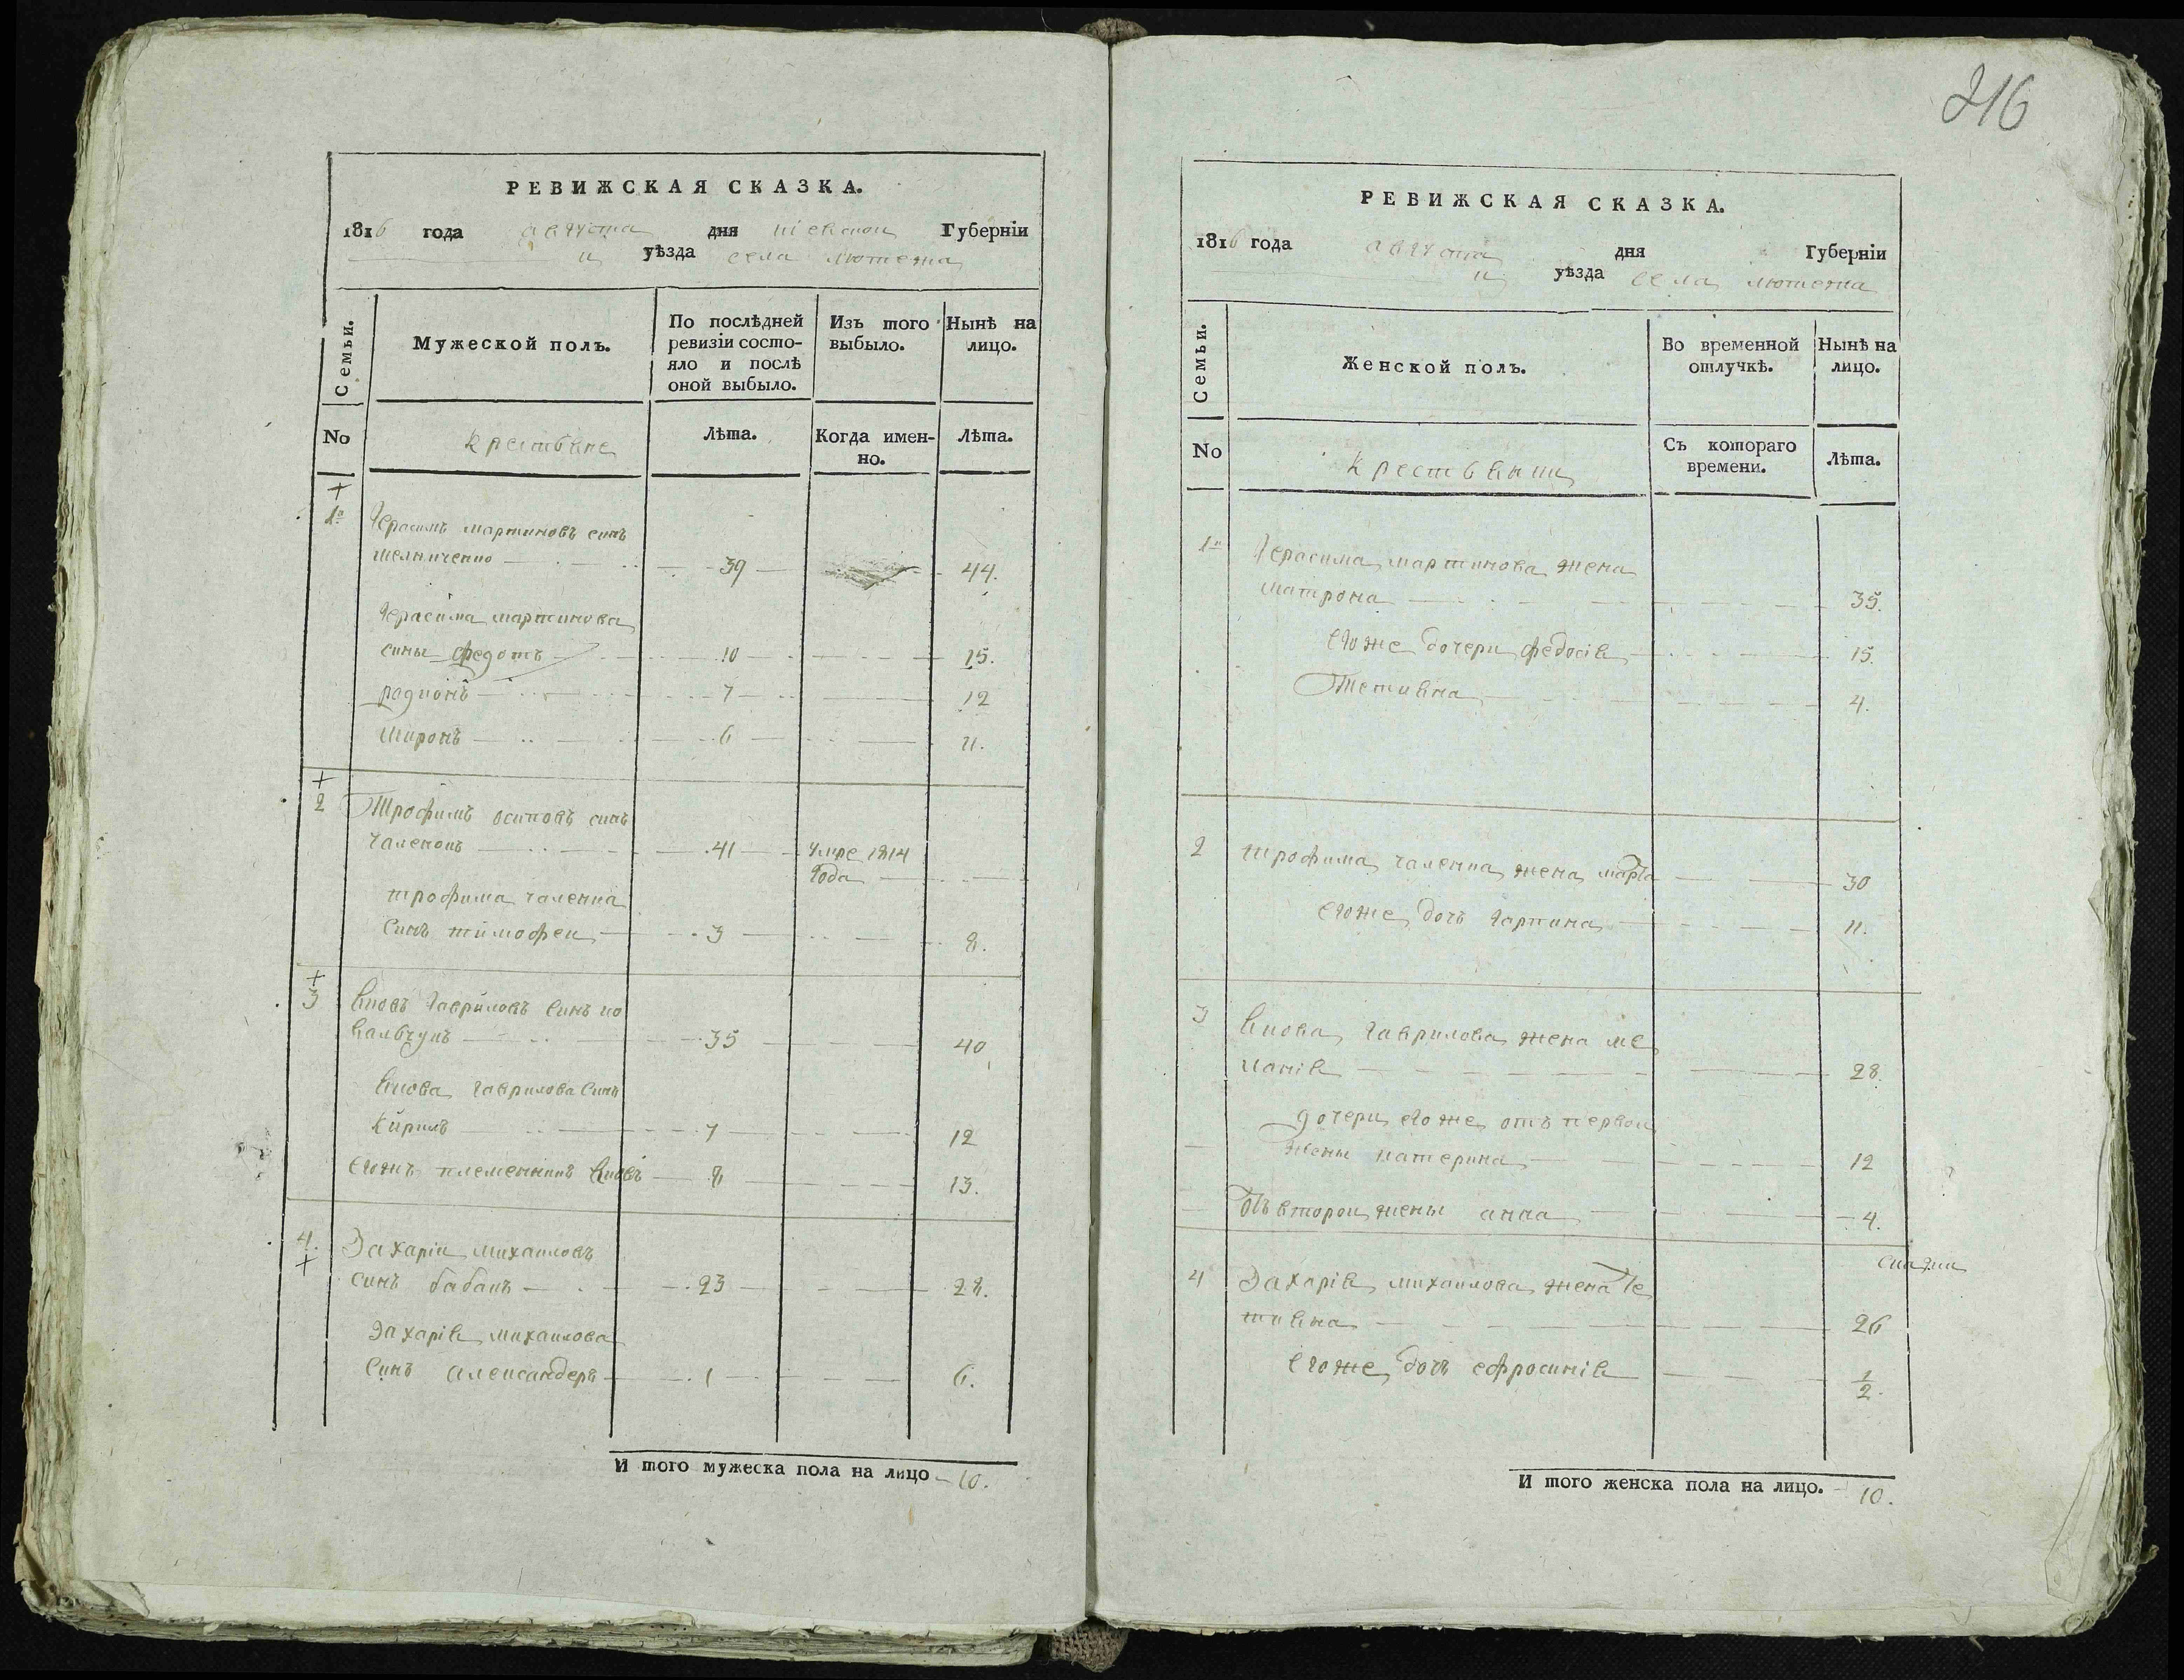 РЕВИЖСКАЯ СКАЗКА.
1816 года августа дня кіевской Губерніи
и уѣзда села лютежа
Семьи.
Мужеской полъ.
По послѣдней ревизіи состояло и послѣ оной выбыло.
Изъ того выбыло.
Нынѣ на лицо.
No
крестьяне
Лѣта.
Когда именно.
Лѣта.
1й Герасимъ мартиновъ синъ
мелниченко 39 44.
Герасима мартинова
сины федотъ 10 15.
радионъ 7 12
миронъ 6 11.
2 Трофимъ осиповъ синъ
галенокъ 41 умре 1814
года
трофима галенка
синъ тимофеи 3 8.
3 яковъ гавриловъ синъ ко
валчукъ 35 40
якова гаврилова синъ
Кирилъ 7 12
егожъ племенникъ яковъ 8 13.
4. Захаріи михаиловъ
синъ бабакъ 23 28.
Захарія михаилова
синъ александеръ 1 6.
И того мужеска пола на лицо 10.
216
РЕВИЖСКАЯ СКАЗКА.
1816 года августа дня Губерніи
и уѣзда села лютежа
Семьи.
Женской полъ.
Во временной отлучкѣ.
Нынѣ на лицо.
No
Крестьянки
Съ котораго времени.
Лѣта.
1й Герасима мартинова жена
матрона 35.
егоже дочери федосія 15.
Тетияна 4.
2 трофима галенка жена марѳа 30
егоже дочъ гарпина 11.
3 якова гаврилова жена ме
ланія 28.
дочери егоже отъ первои
жены катерина 12
Отъ второи жены анна 4.
4 Захарія михаилова жена те
тияна 26
егоже дочъ ефросинія 1/2.
И того женска пола на лицо. 10.